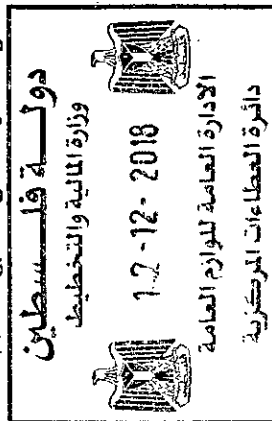 دولة فلسطين
وزارة المالية والتخطيط
12-12-2018
الادارة العامة للوازم العامة
دائرة العطاءات المركزية